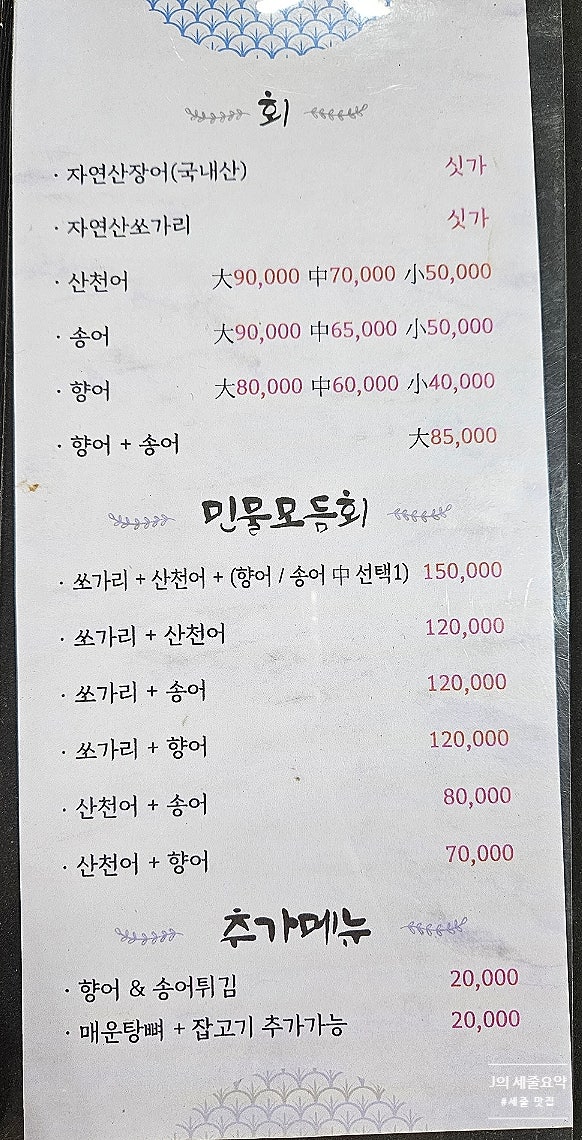 회
· 자연산장어(국내산) 싯가
· 자연산쏘가리 싯가
· 산천어 大90,000 中70,000 小50,000
· 송어 大90,000 中65,000 小50,000
· 향어 大80,000 中60,000 小40,000
· 향어 + 송어 大85,000
민물모듬회
· 쏘가리 + 산천어 + (향어 / 송어 中 선택1) 150,000
· 쏘가리 + 산천어 120,000
· 쏘가리 + 송어 120,000
· 쏘가리 + 향어 120,000
· 산천어 + 송어 80,000
· 산천어 + 향어 70,000
추가메뉴
· 향어 & 송어튀김 20,000
· 매운탕뼈 + 잡고기 추가가능 20,000
J의 세줄요약
#세줄 맛집